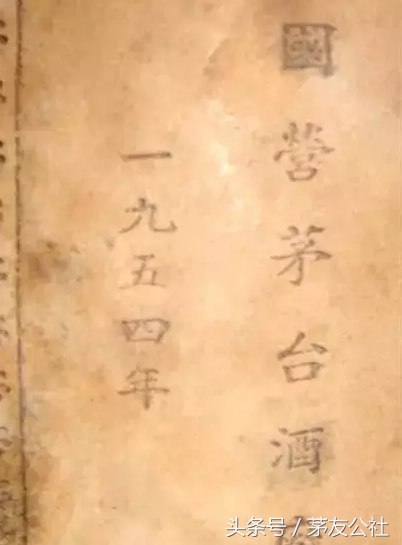 國營茅台酒
一九五四年
头条号 / 茅友公社